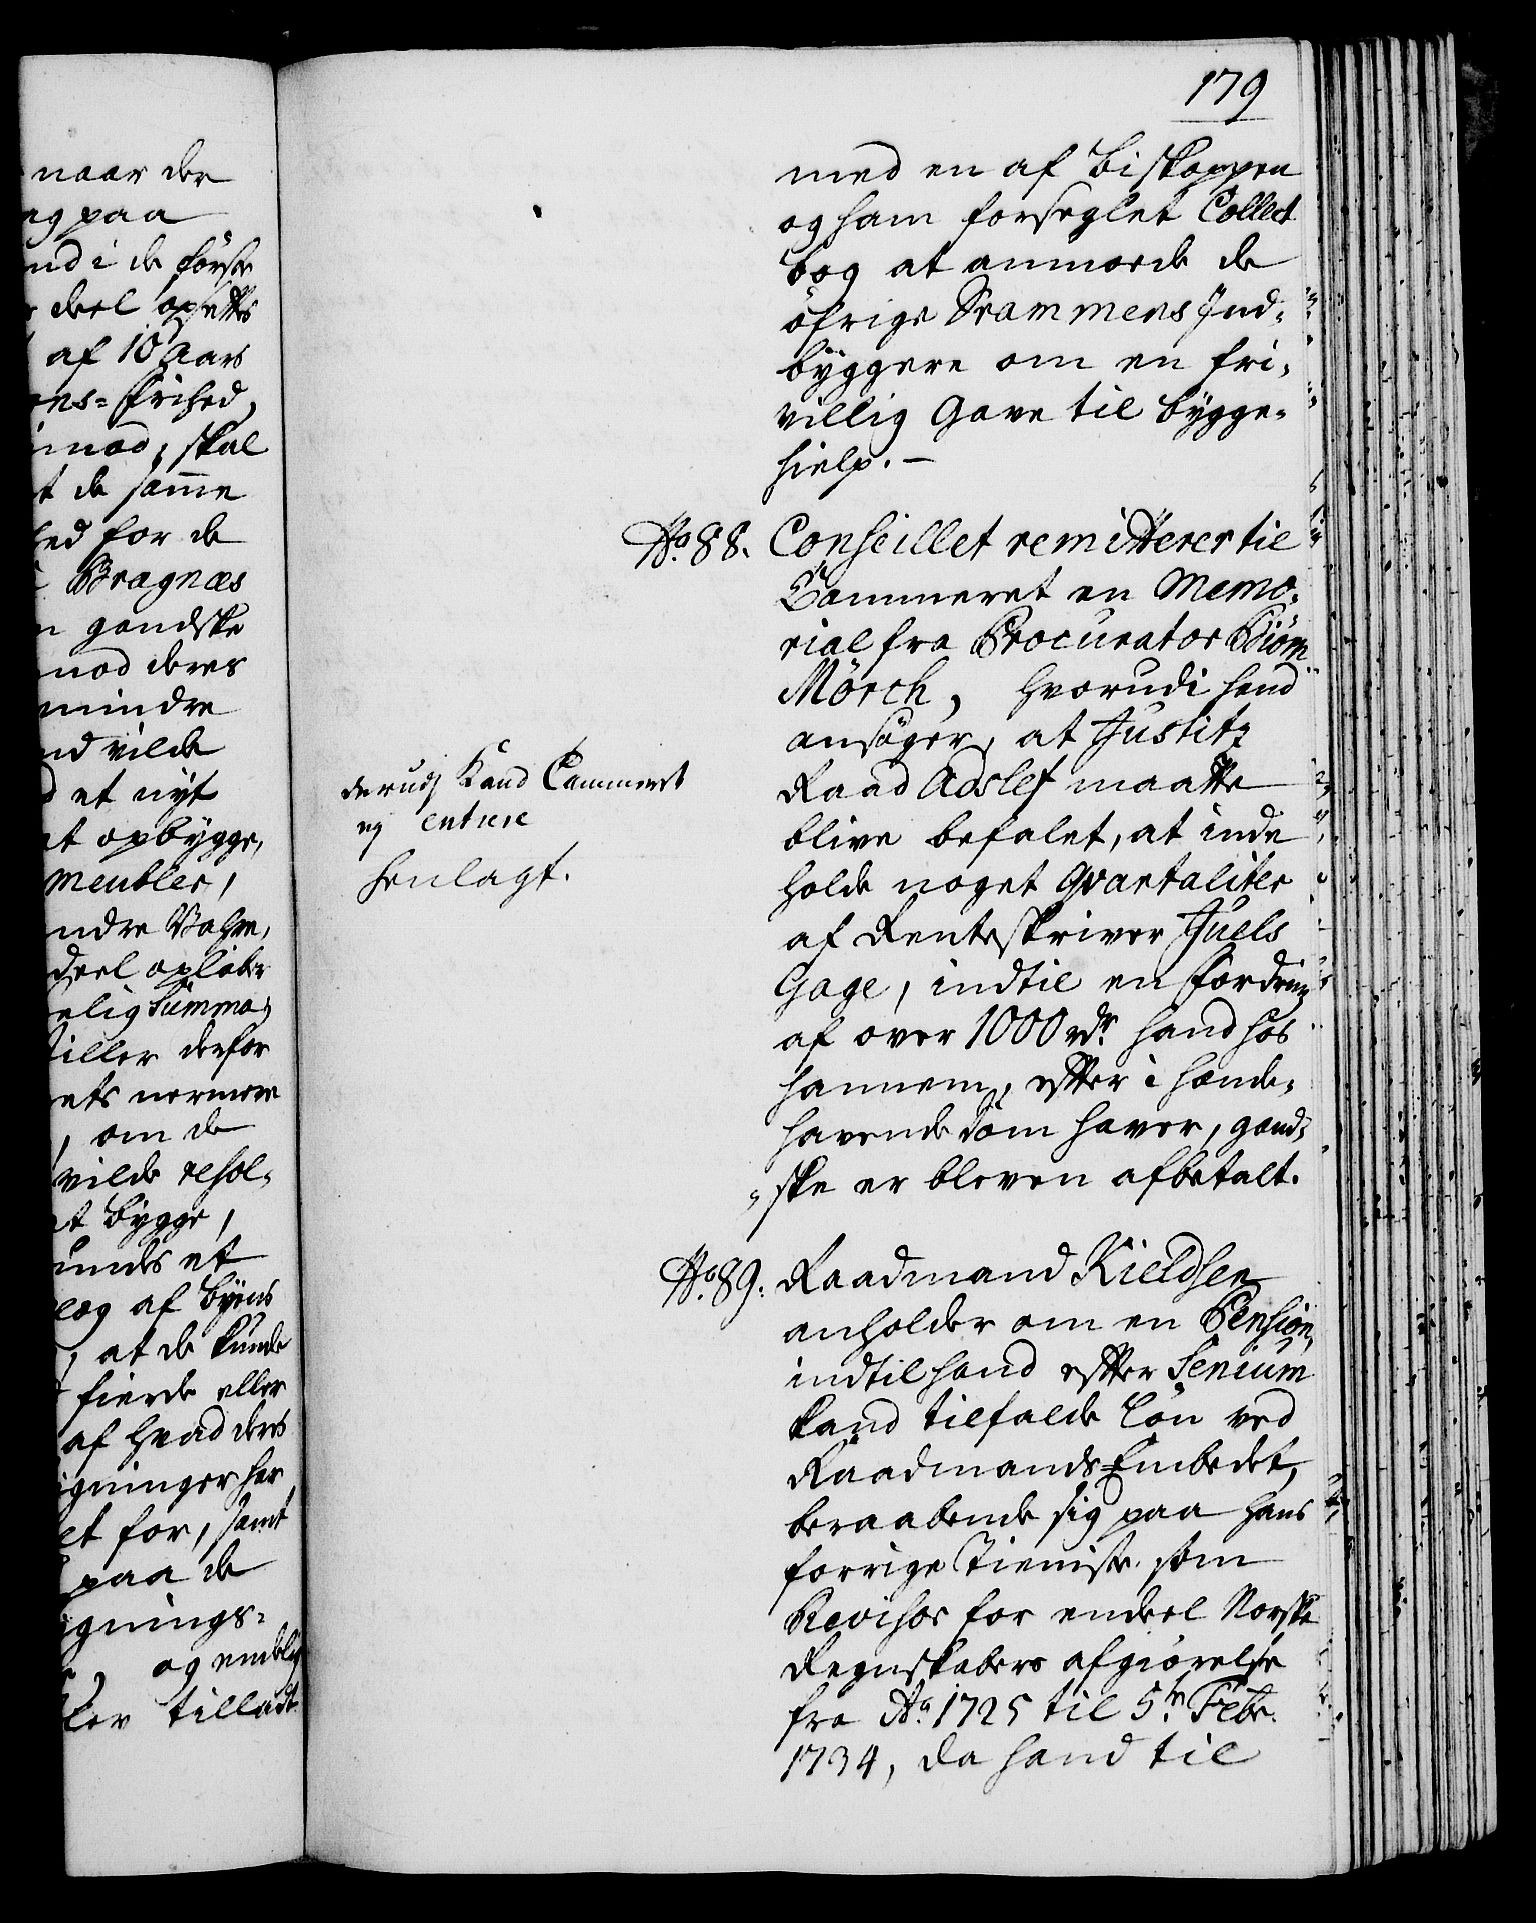 naar der
paa
ind i de første
deel opsættes
af 10 Aars
ens-Frihed,
imod, skal
t de samme
hed for de
Bragnæs
n gandske
mod deres
mindre
nd vilde
d et nyt
at opbygge,
Meubler,
andre Vahre,
deel opløber
elig Summa,
stiller derfor
ets nermere
, om de
vilde resol-
at bygge,
undes et
læg af byens
, at de kunde
fierde eller
af hvad deres
igninger her
et for, samt
paa de
gnings-
, og endelig
ler tilladt
179
med en af Biskoppen
og ham forseglet Collect
bog at anmode de
öfrige Drammens Ind-
byggere om en fri-
villig Gave til bygge-
hielp. —
No. 88. Conseillet remitterer til
Cammeret en Memo-
rial fra Procurator Biörn
Mörch, hvorudi hand
ansöger, at Justitz
Raad Adslef maatte
blive befalet, at inde
holde noget Qvartaliter
af Renteskriver Juels
Gage, indtil en Fordring
af over 1000 rdr. hand hos
hannem, efter i hænde-
havende Dom haver, gand-
ske er bleven afbetalt.
derudj Kand Cammeret
ej entrere
henlagt.
No. 89. Raadmand Kieldsen
anholder om en Pension,
indtil hand efter Senium
kand tilfalde Løn ved
Raadmands Embedet,
beraabende sig paa hans
forrige Tieniste som
Revisor for endeel Norske
Regnskabers afgiørelse
fra Ao. 1725 til 5te Febr.
1734, da hand til